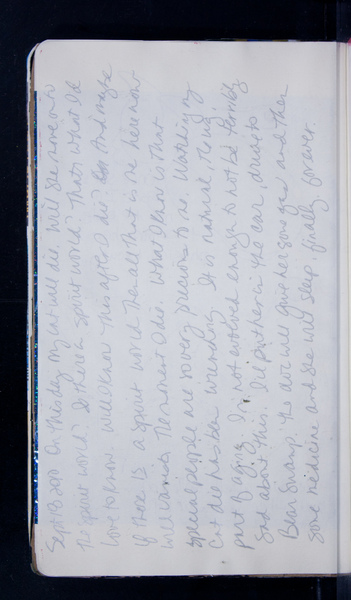 Sept 18 2020 On this day my cat will die. Will she move onto
the spirit world? Is there a spirit world? That's what I'd
love to know. Will I know this after I die? And maybe
if there is a spirit world then all that is me here now
will vanish the moment I die. What I know is that
special people are so very precious to me. Watching my
cat die has been wrenching. It is natural, the
part of aging. I'm not evolved enough to not be terribly
sad about this. I'll put her in the car, drive to
Bear Swamp. The dr will give her some gas and then
some medicine and she will sleep, finally forever.